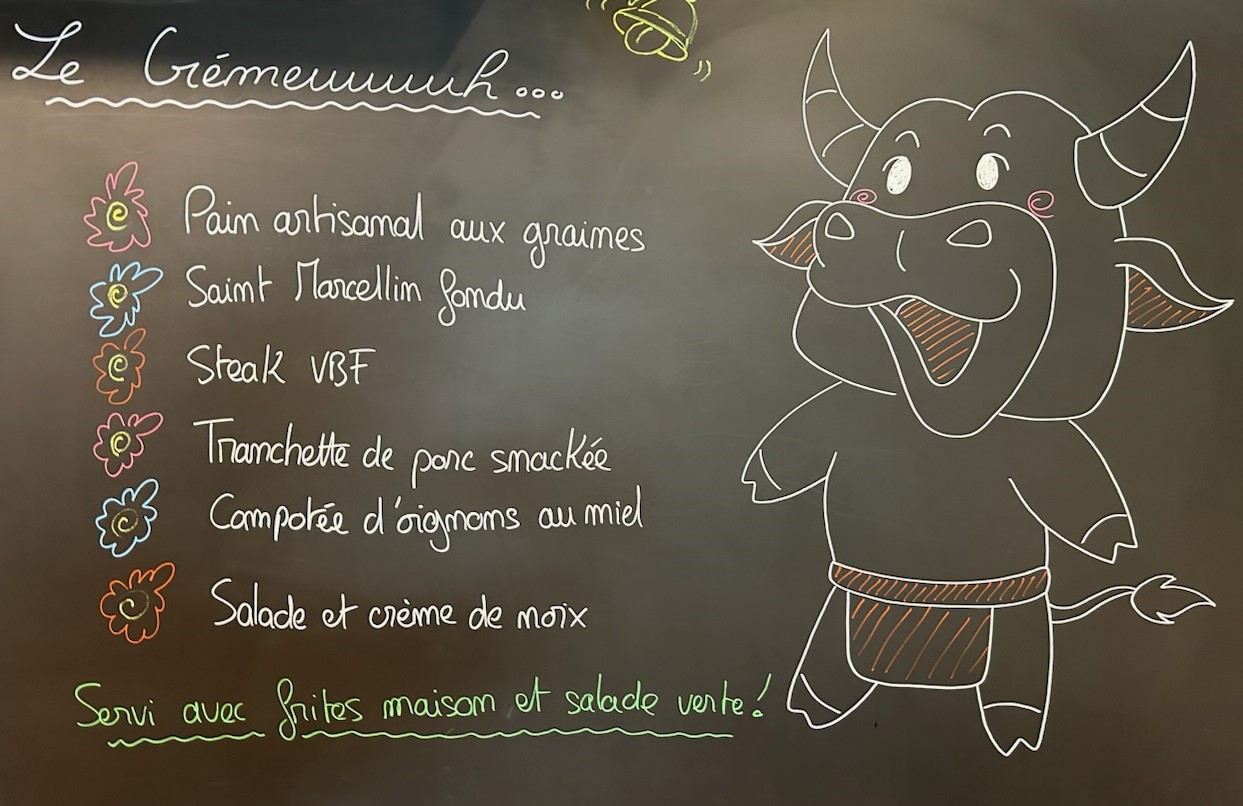 Le Crémeuuuuuh...
Pain artisanal aux graines
Saint Marcellin fondu
Steak VBF
Tranchette de porc smackée
Compotée d'oignons au miel
Salade et crème de noix
Servi avec frites maison et salade verte!